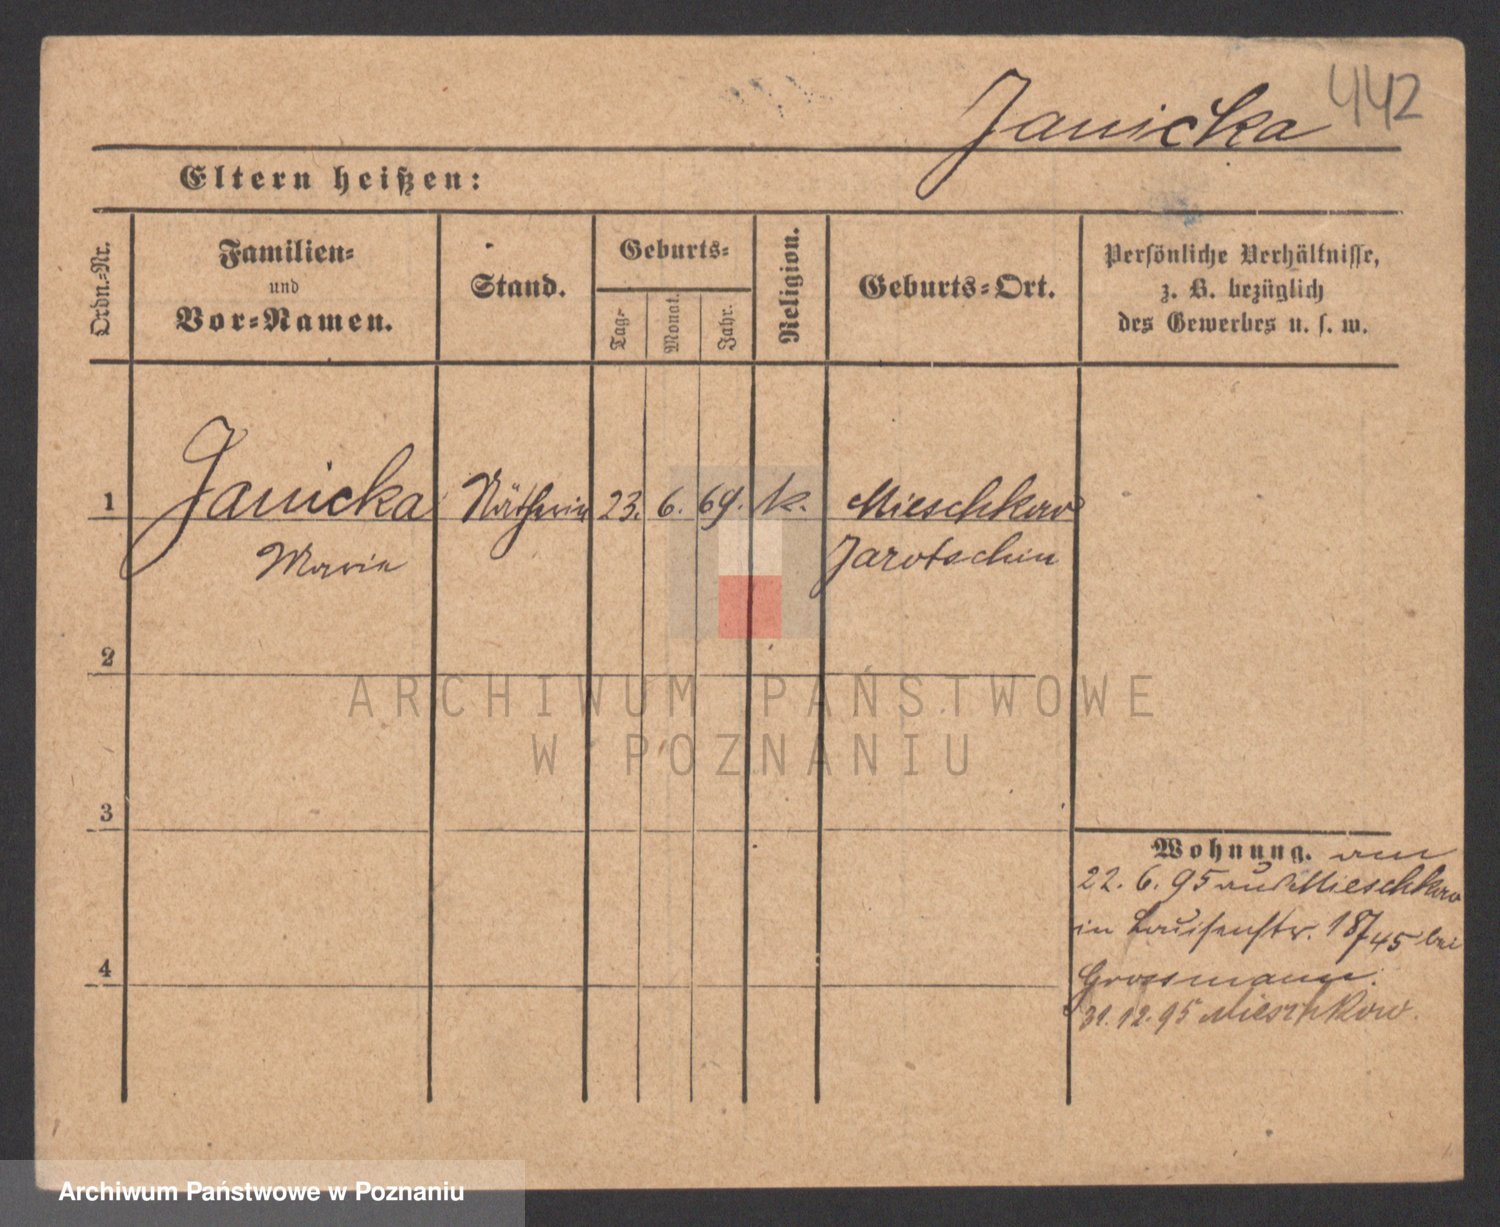 442
Janicka
Eltern heißen:
Ordn.-Nr.
Familien-
und
Vor-Namen.
Stand.
Geburts-
Tag-
Monat.
Jahr.
Religion.
Geburts-Ort.
Persönliche Verhältnisse,
z. B. bezüglich
des Gewerbes u. s. w.
1
Janicka
Marie
Nätherin
23.
6.
69.
k.
Mieschkow
Jarotschin
2
3
4
Wohnung. am
22. 6. 95 aus Mieschkow
in Louisenstr. 18/45 bei
Grossmann.
31. 12. 95 Mieschkow.
ARCHIWUM PAŃSTWOWE
W POZNANIU
Archiwum Państwowe w Poznaniu